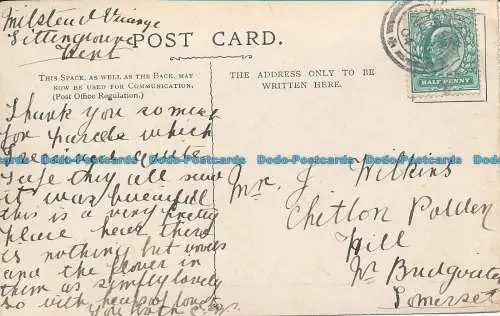 Milstead Vicarage
Sittingbourne
Kent
POST CARD.
HALF PENNY
THIS SPACE, AS WELL AS THE BACK, MAY
NOW BE USED FOR COMMUNICATION.
(Post Office Regulation.)
THE ADDRESS ONLY TO BE
WRITTEN HERE.
Thank you so much
for parcels which
safe they all said
it was beautiful
this is a very pretty
place here there
is nothing but woods
and the flowers in
them as simply lovely
so with heaps of love to
you both
Mr. J Wilkins
Chetton Polden
Hill
Nr Bridgwater
Somerset
Dodo-Postcards Dodo-Postcards Dodo-Postcards Dodo-Postcards Dodo-Postcards